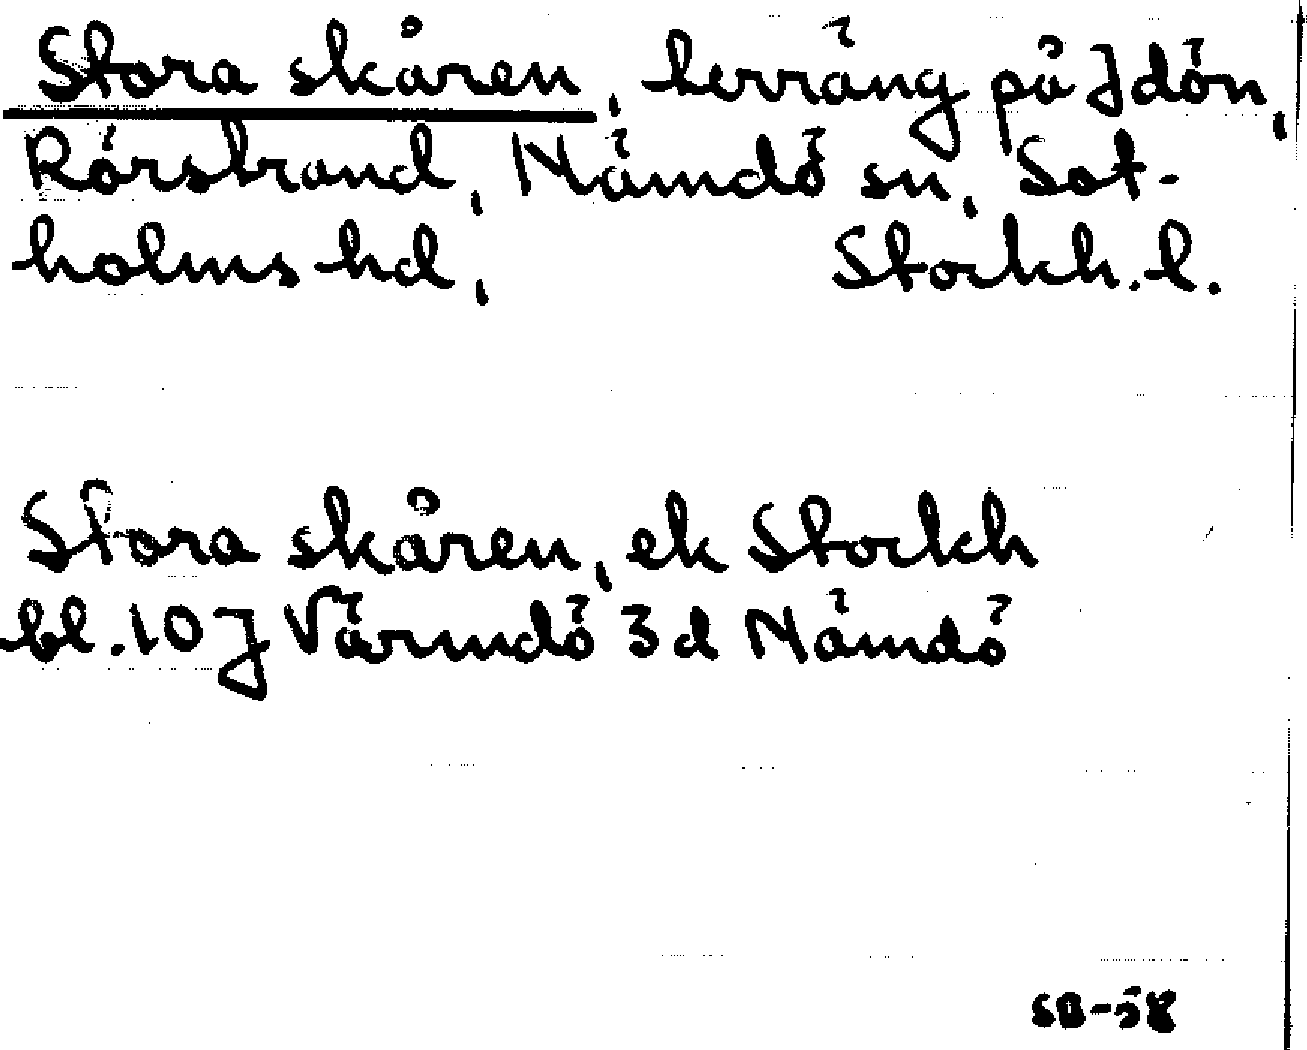 Stora skåren, terräng på Idön,
Rörstrand, Nämdö sn, Sot-
holms hd, Stockh. l.
Stora skåren, ek Stockh
bl. 10 J Värmdö 3d Nämdö
SB-58